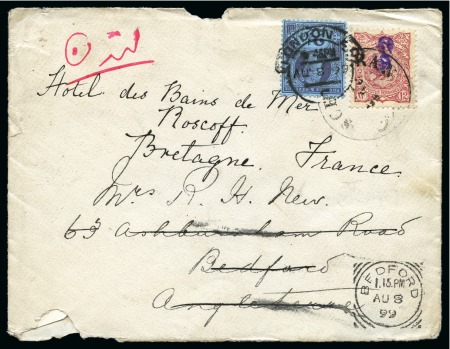 لندن
LONDON
AU 8
Hotel des Bains de Mer
Roscoff.
Bretagne, France
Mrs R. H. New.
63 Ashburnham Road
Bedford
Angleterre
BEDFORD
1.15.PM
AU 8
99